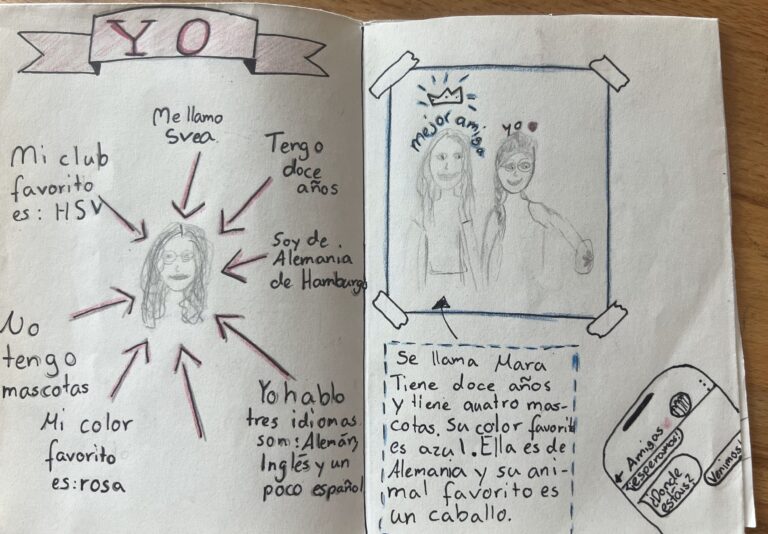 YO
Me llamo
Svea.
Mi club
favorito
es: HSV
Tengo
doce
años
Soy de
Alemania
de Hamburgo
No
tengo
mascotas
Mi color
favorito
es: rosa
Yo hablo
tres idiomas
som: Alemán,
Inglés y un
poco español
mejor amiga
yo
Se llama Mara
Tiene doce años
y tiene quatro mas-
cotas. Su color favorit
es azul. Ella es de
Alemania y su ani-
mal favorito es
un caballo.
Amigas
¡esperamos!
¿Donde
estáis?
Venimos!